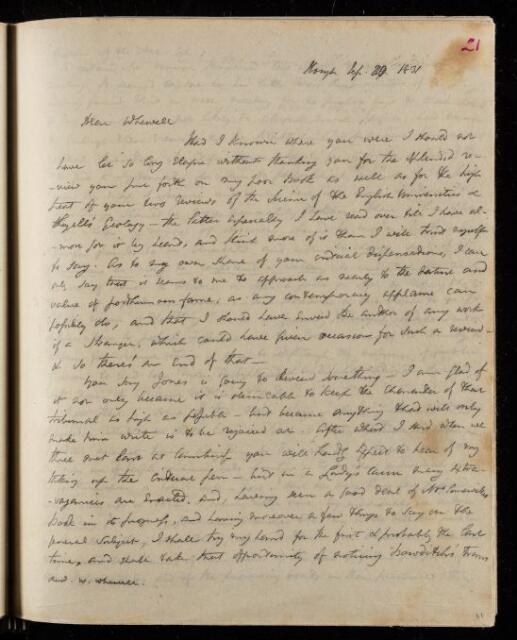 21
Slough Sep. 29 1831
Dear Whewell
Had I known where you were I should not
have let so long elapse without thanking you for the splendid re-
-view you put forth on my poor Book as well as for the high
treat of your two reviews of the Science of the English Universities &
Lyell's Geology — the latter especially I have read over till I have al-
-most got it by heart, and think more of it than I will trust myself
to say. As to my own share of your critical dispensations, I can
only say that it seems to me to approach as nearly to the nature and
value of posthumous fame, as any contemporary applause can
possibly do, and that I should have envied the author of any work
if a Stranger, which could have given occasion for such a review —
& so there's an end of that —
You say Jones is going to Review something — I am glad of
it not only because it is desirable to keep the character of that
tribunal as high as possible — but because anything that will only
make him write is to be rejoiced at. After what I said when we
three met last at you will hardly expect to hear of my
taking up the critical pen — but in a Lady's turn many extra-
-vagancies are enacted. and, having seen a good deal of Mrs Somerville's
Book in its progress, and having moreover a few things to say on the
general subject, I shall try my hand for the first & probably the last
time, and shall take that opportunity of noticing Bowditch's Trans
Revd. W. Whewell